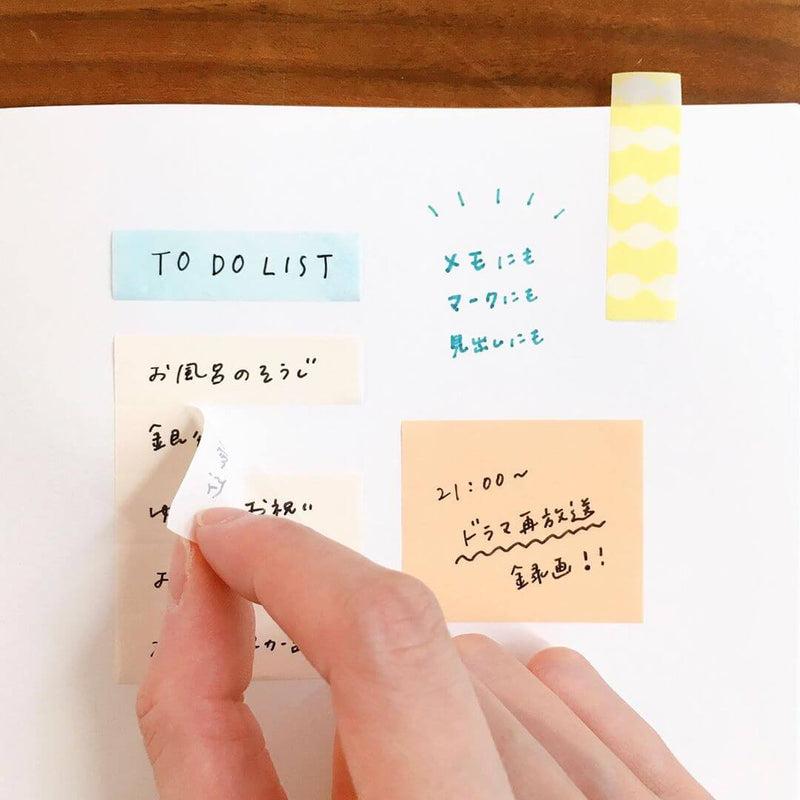 TO DO LIST
お風呂のそうじ
銀
ゆ お祝い
メモにも
マークにも
見出しにも
21:00~
ドラマ再放送
録画!!